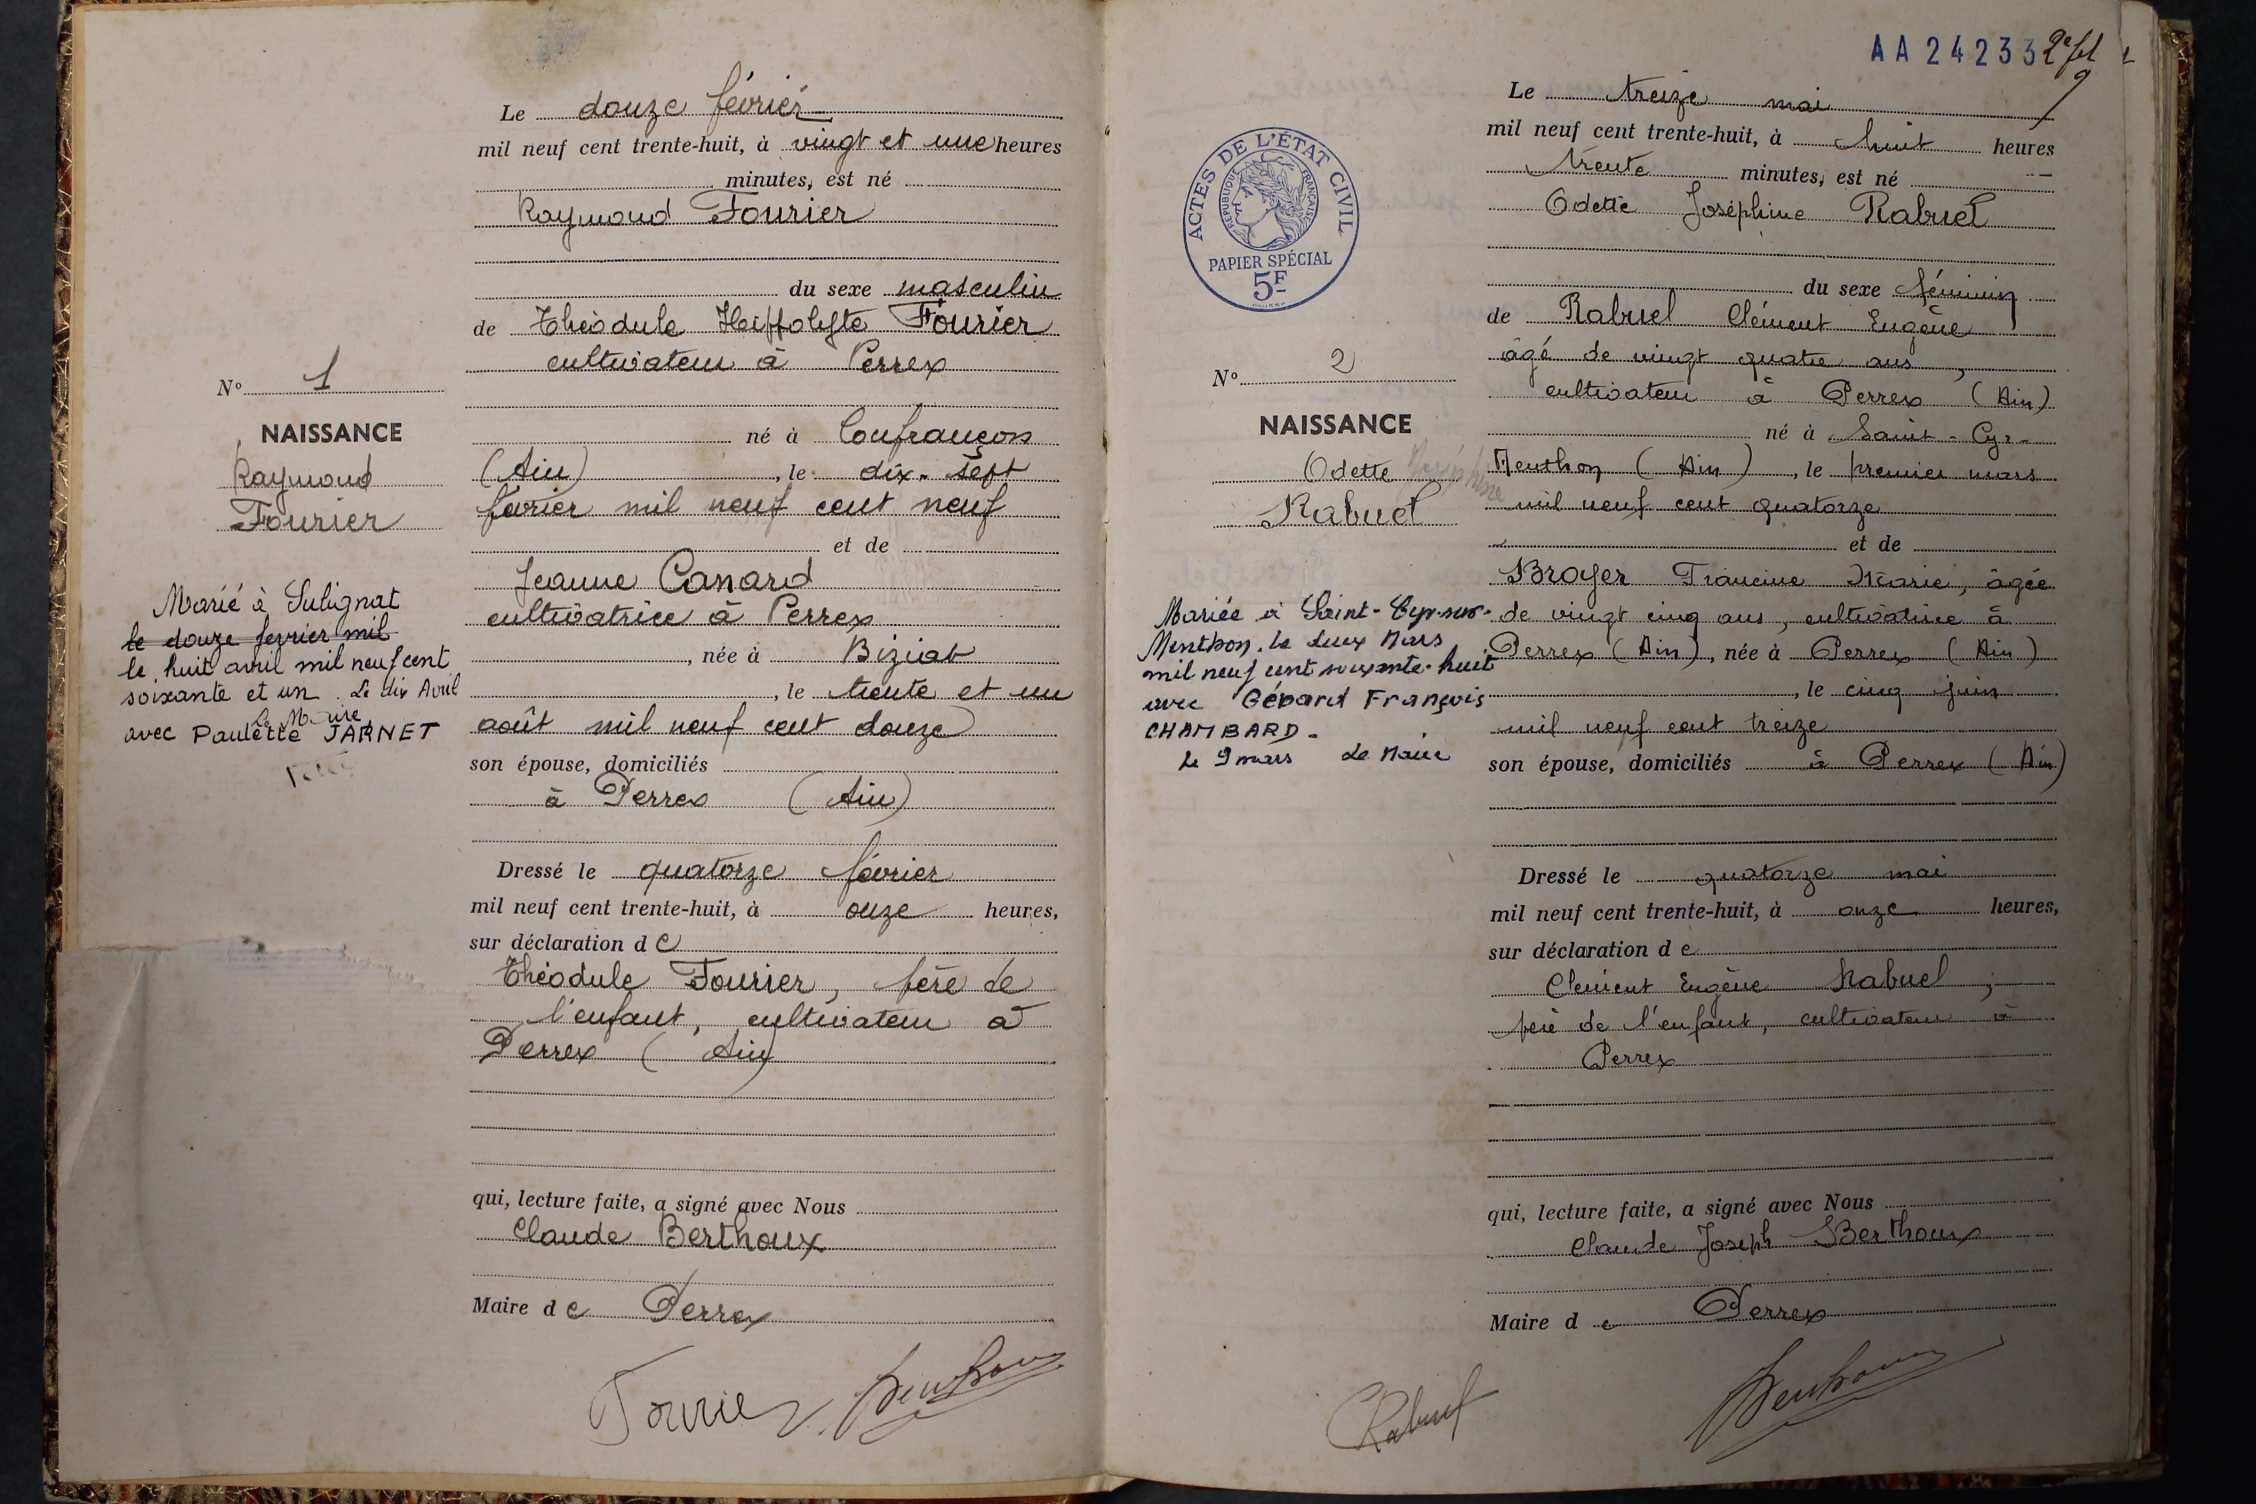 Le douze février
mil neuf cent trente-huit, à vingt et une heures
minutes, est né
Raymond Fourier
du sexe masculin
de Théodule Hippolyte Fourier
cultivateur à Perrex
né à Confrançon
(Ain), le dix-sept
février mil neuf cent neuf
et de
Jeanne Canard
cultivatrice à Perrex
, née à Biziat
, le trente et un
août mil neuf cent douze
son épouse, domiciliés
à Perrex (Ain)
Dressé le quatorze février
mil neuf cent trente-huit, à onze heures,
sur déclaration de
Théodule Fourier, père de
l'enfant, cultivateur à
Perrex (Ain)
qui, lecture faite, a signé avec Nous
Claude Berthoux
Maire de Perrex
Fourier Berthoux
N° 1
NAISSANCE
Raymond
Fourier
Marié à Sulignat
le douze fevrier mil
le huit avril mil neuf cent
soixante et un Le dix Avril
Le Maire,
avec Paulette JARNET
AA 24233
ACTES DE L'ÉTAT CIVIL
RÉPUBLIQUE FRANÇAISE
PAPIER SPÉCIAL
5F
N° 2
NAISSANCE
Odette Joséphine
Rabuel
Mariée à Saint-Cyr-sur-
Menthon, le deux Mars
mil neuf cent soixante-huit
avec Gérard François
CHAMBARD.
Le 9 mars Le Maire
Le treize mai
mil neuf cent trente-huit, à huit heures
trente minutes, est né
Odette Joséphine Rabuel
du sexe féminin
de Rabuel Clément Eugène
âgé de vingt quatre ans,
cultivateur à Perrex (Ain)
né à Saint-Cyr-
Menthon (Ain), le premier mars
mil neuf cent quatorze
et de
Broyer Francine Marie, âgée
de vingt cinq ans, cultivatrice à
Perrex (Ain), née à Perrex (Ain)
, le cinq juin
mil neuf cent treize
son épouse, domiciliés à Perrex (Ain)
Dressé le quatorze mai
mil neuf cent trente-huit, à onze heures,
sur déclaration de
Clément Eugène Rabuel,
père de l'enfant, cultivateur à
Perrex
qui, lecture faite, a signé avec Nous
Claude Joseph Berthoux
Maire de Perrex
CRabuel Berthoux